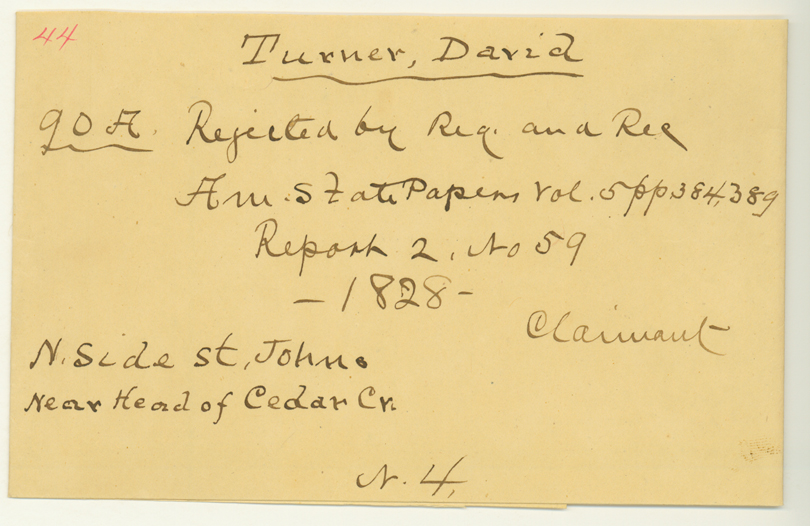 44
Turner, David
90 A. Rejected by Reg. and Rec
Am. State Papers Vol. 5 pp 384, 389
Report 2, No 59
- 1828 -
Claimant
N. Side St. Johns
Near Head of Cedar Cr.
N. 4.